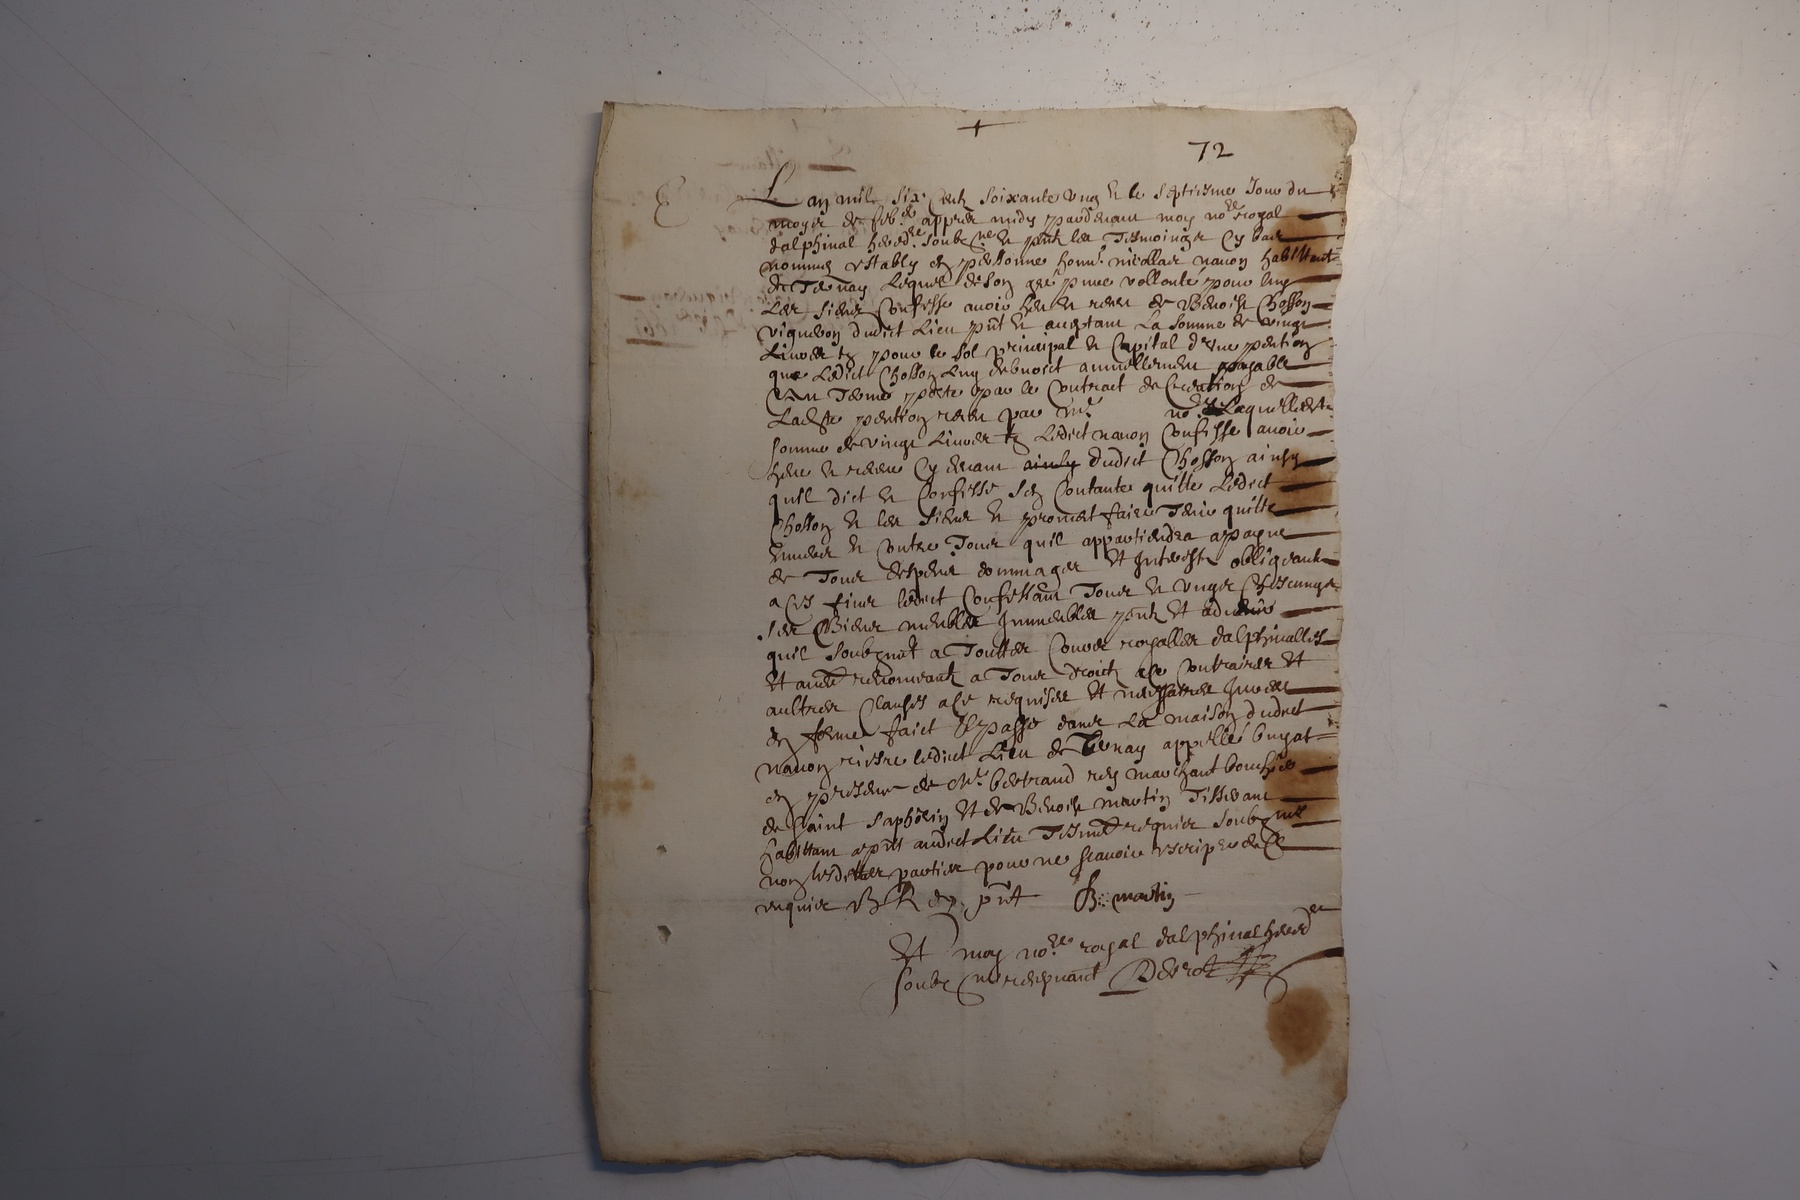 +
72
Lan mil six cent soixante ung & le septiesme Jour du
moys de feb.er appres midy pardevant moy no.re royal
dalphinal hered.re soubz.né & pntz les Tesmoingz Cy bas
nommes estably en personne hon.e nicollas navon habittant
de Ternay lequel de son gré pure vollonté pour luy
Les siens Confesse avoir heu & receu de Benoist Chosson
vigneron dudict Lieu pnt & aceptant La somme de vingt
Livres tz pour le sol principal & Capital d'une pention
que Ledict Chosson luy debvoict annuellement payable
Au Terme porté par le Contract de Creation de
Ladite pention receu par m.e no.re Laquelle
somme de vingt Livres tz Ledict navon Confesse avoir
heu & receu Cy devant dudict Chosson ainsy
quil dict & Confesse sen Contante quitte Ledict
Chosson & les siens & promet faire Tenir quitte
envers & contre Tous quil appartiendra a payne
de Tous despens dommages Et Interestz obligeant
a ces fins ledict Confessant Tous & ungs Chescungs
ses Biens meubles Immeubles pntz Et advenir
quil soubzmet a Touttes Cours royalles dalphinalles
Et renonceant a Tous droictz a ce contraires Et
aultres Clauses a ce requises Et necessaires
en forme faict & passé dans La maison dudict
navon riere ledict Lieu de Ternay appellé bugat
en presence de M.e bertrand rey marchant bouchier
de saint saphorin Et de Benoist martin Tisserant
habittant audict Lieu Tesm.s requier soubzné
non lesdites parties pour ne scavoir escripre de ce
enquier BR en pnt B. martin
Et moy no.re royal dalphinal hered.re
soubz.né recepvant Deerot